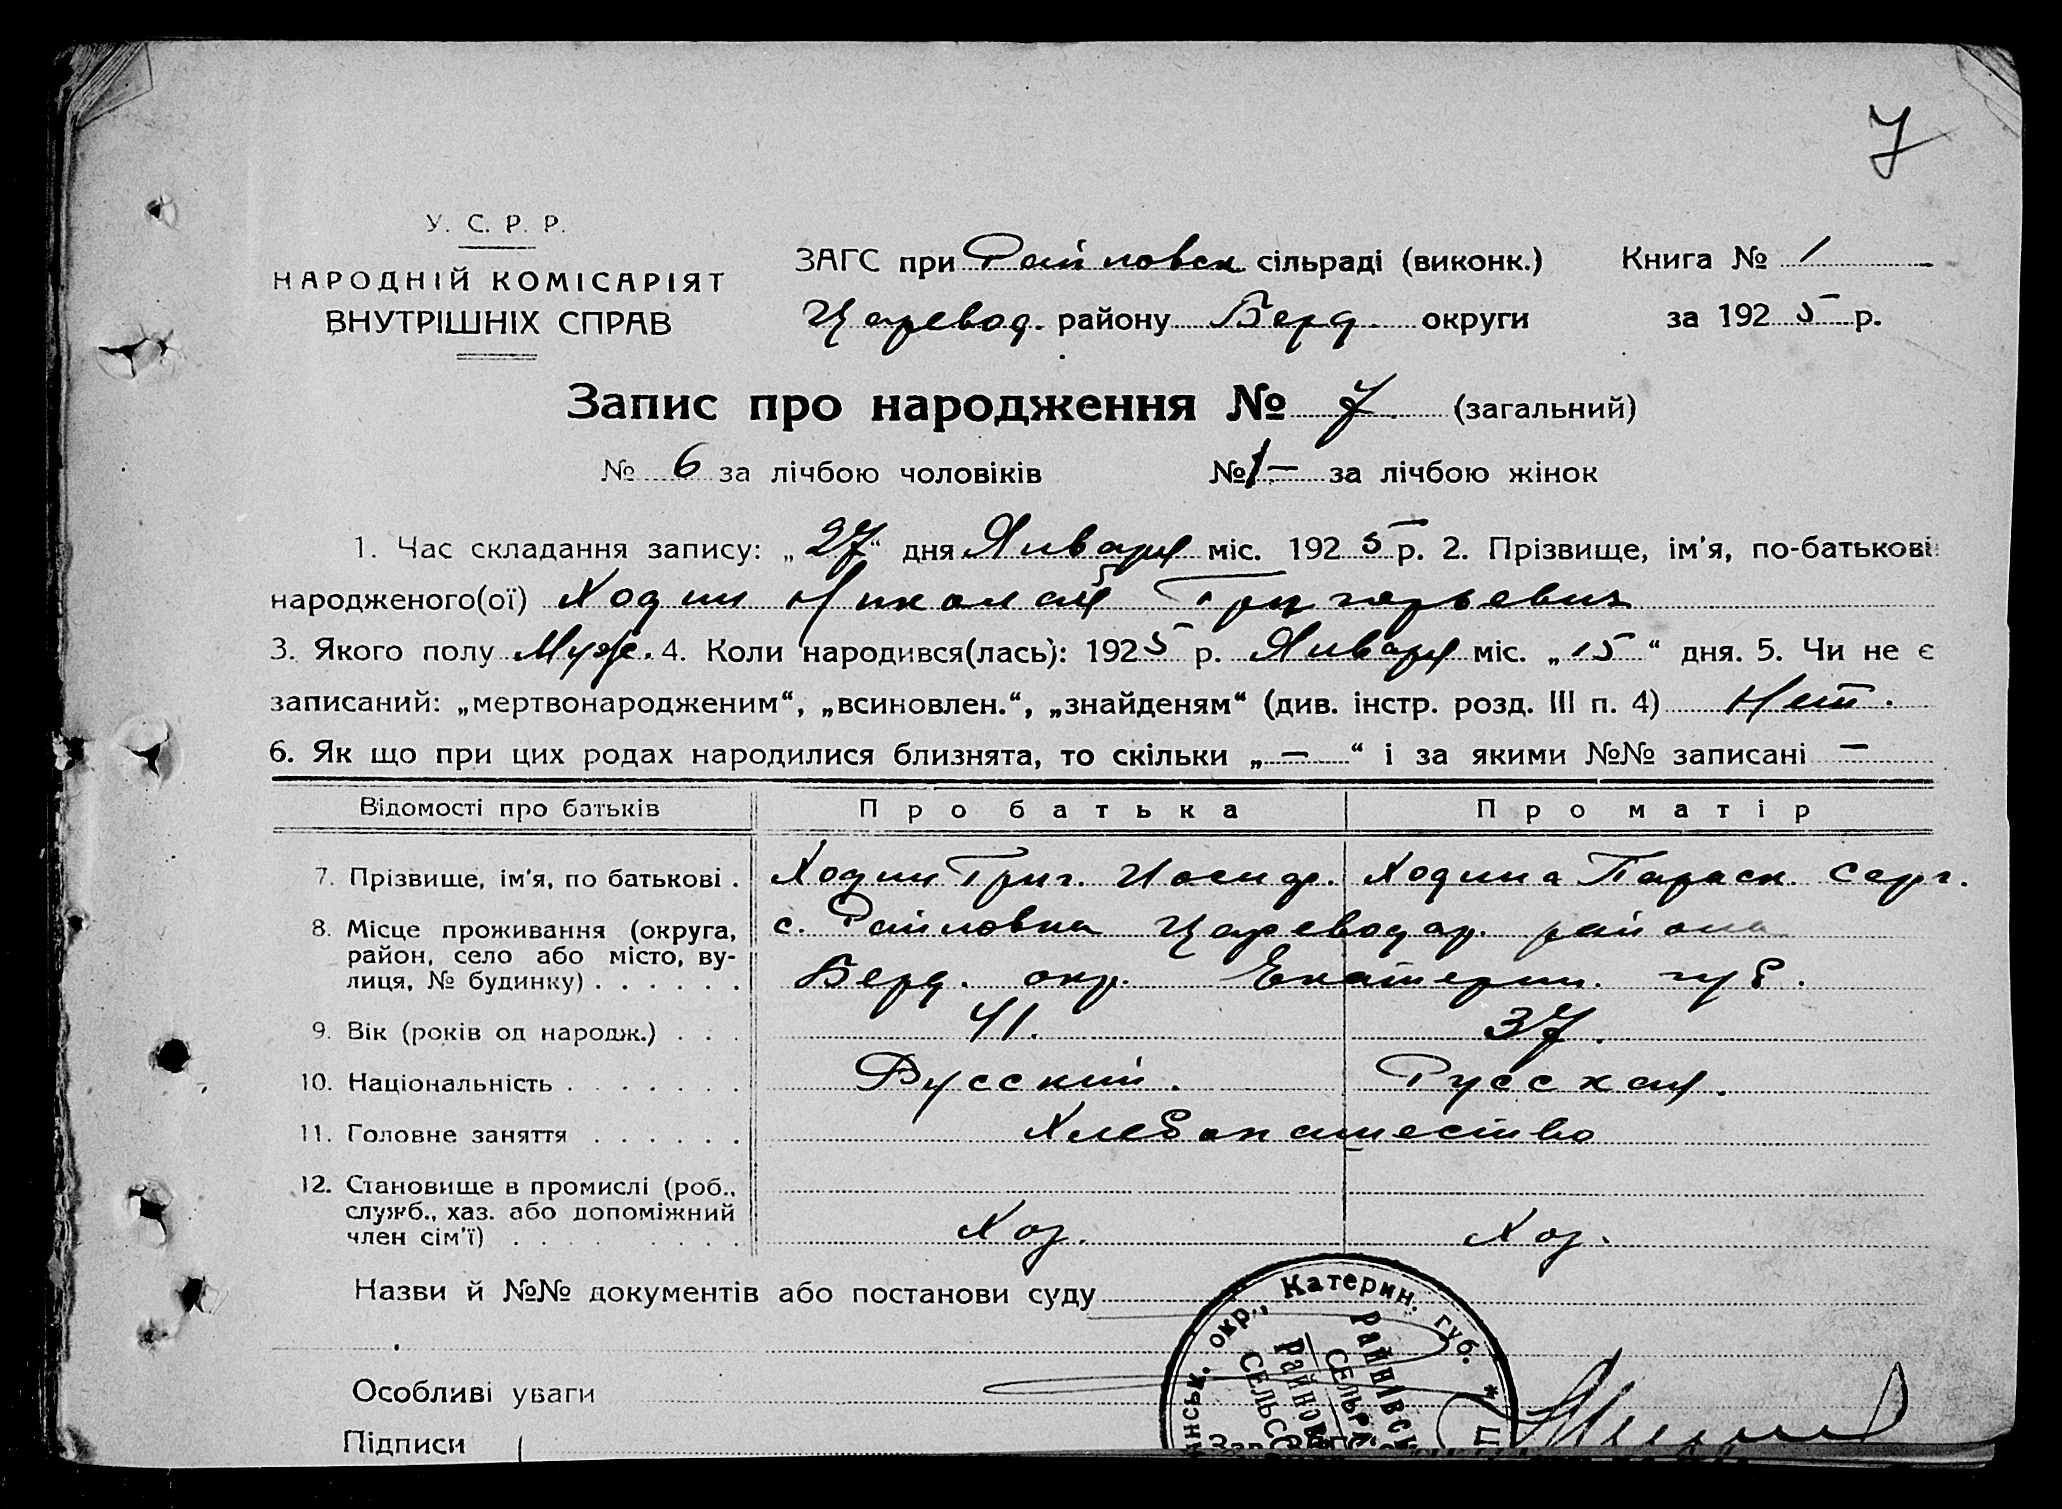 7
У. С. Р. Р.
НАРОДНІЙ КОМІСАРІЯТ
ВНУТРІШНІХ СПРАВ
ЗАГС при Райновск сільраді (виконк.) Книга № 1
Царевод. району Берд. округи за 1925 р.
Запис про народження № 7 (загальний)
№ 6 за лічбою чоловіків № — за лічбою жінок
1. Час складання запису: „27“ дня Января міс. 1925 р. 2. Прізвище, ім'я, по-батькові
народженого(ої) Ходин Николай Григорьевич
3. Якого полу Муж. 4. Коли народився(лась): 1925 р. Января міс. „15“ дня. 5. Чи не є
записаний: „мертвонародженим“, „всиновлен.“, „знайденям“ (див. інстр. розд. III п. 4) Нет.
6. Як що при цих родах народилися близнята, то скільки „—“ і за якими №№ записані —
Відомості про батьків Про батька Про матір
7. Прізвище, ім'я, по батькові . Ходин Григ. Иосиф. Ходина Параск. Серг.
8. Місце проживання (округа, с. Райновка Цареводар. района
район, село або місто, ву-
лиця, № будинку) . . . . . . Берд. окр. Екатерин. губ.
9. Вік (років од народж.) . . . 41. 37.
10. Національність . . . . . . . Русский. Русская.
11. Головне заняття . . . . . . Хлебопашество
12. Становище в промислі (роб.,
служб., хаз. або допоміжний
член сім'ї) . . . . . . . . . Хоз. Хоз.
Назви й №№ документів або постанови суду
Особливі уваги
Підписи
нськ. окр., Катерин. губ. * Ц